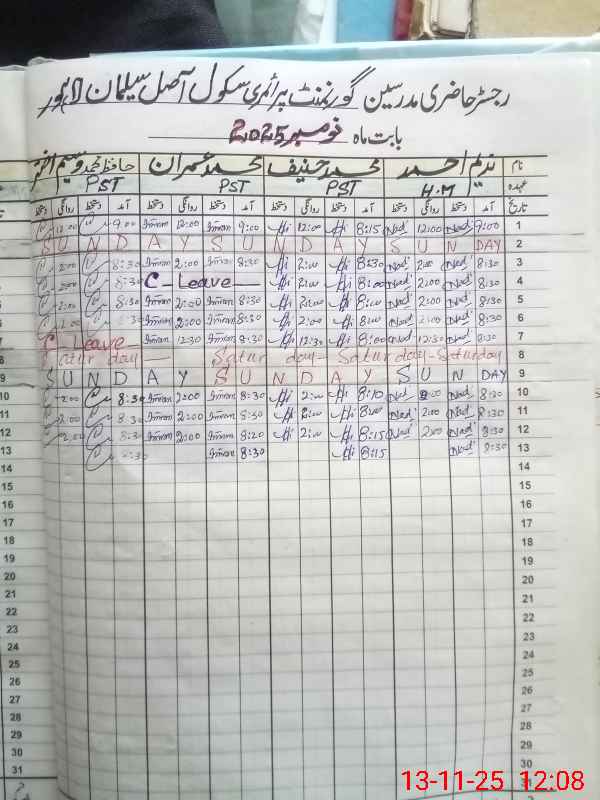 رجسٹر حاضری مدرسین گورنمنٹ پرائمری سکول آصل سلیمان لاہور
بابت ماہ نومبر 2025
نام ندیم احمد محمد حنیف محمد عمران حافظ محمد وسیم اختر
عہدہ H.M PST PST PST
تاریخ آمد دستخط روانگی دستخط آمد دستخط روانگی دستخط آمد دستخط روانگی دستخط آمد دستخط روانگی دستخط
1 9:00 Nad 12:00 Nad 8:15 Hi 12:00 Hi 9:00 Imran 12:00 Imran 9:00 12:00
2 SUNDAY SUNDAY SUNDAY
3 8:30 Nad 2:00 Nad 8:30 Hi 2:00 Hi 8:30 Imran 2:00 Imran 8:30 2:00
4 8:30 Nad 2:00 Nad 8:00 Hi 2:00 Hi C-Leave 8:30 2:00
5 8:30 Nad 2:00 Nad 8:00 Hi 2:00 Hi 8:30 Imran 2:00 Imran 8:30 2:00
6 8:30 Nad 2:00 Nad 8:00 Hi 2:00 Hi 8:30 Imran 2:00 Imran 8:30 2:00
7 8:30 Nad 12:30 Nad 8:00 Hi 12:30 Hi 8:30 Imran 12:30 Imran C-Leave
8 Saturday Saturday - Saturday - Saturday
9 SUNDAY SUNDAY SUNDAY
10 8:30 Nad 2:00 Nad 8:10 Hi 2:00 Hi 8:30 Imran 2:00 Imran 8:30 2:00
11 8:30 Nad 2:00 Nad 8:00 Hi 2:00 Hi 8:30 Imran 2:00 Imran 8:30 2:00
12 8:30 Nad 2:00 Nad 8:15 Hi 2:00 Hi 8:20 Imran 2:00 Imran 8:30 2:00
13 8:30 Nad 8:15 Hi 8:30 Imran 8:30
14
15
16
17
18
19
20
21
22
23
24
25
26
27
28
29
30
31
13-11-25 12:08